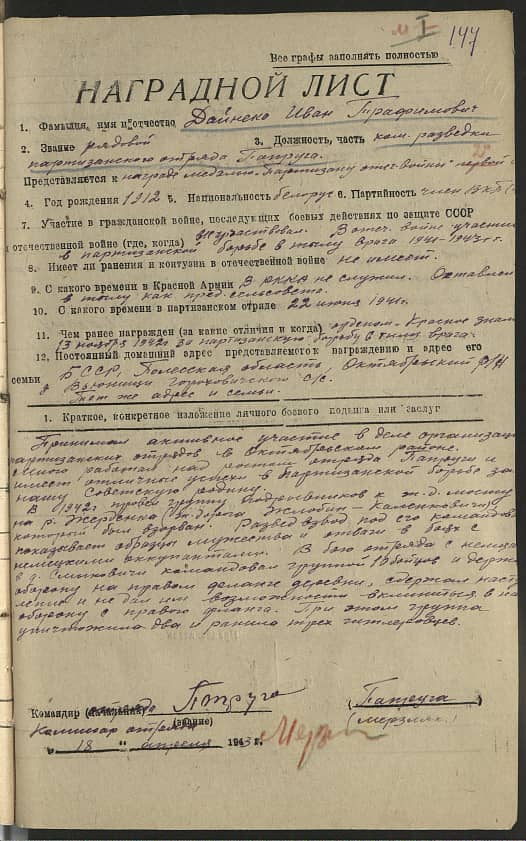 I
147
Все графы заполнять полностью
НАГРАДНОЙ ЛИСТ
1. Фамилия, имя и отчество Дайнеко Иван Трафимович
2. Звание рядовой 3. Должность, часть ком. разведки
партизанского отряда Патруга.
Представляется к награде медалью „Партизану отеч. войны" первой
4. Год рождения 1912 5. Национальность белорус 6. Партийность член ВКП(
7. Участие в гражданской войне, последующих боевых действиях по защите СССР
и отечественной войне (где, когда) Не участвовал. В отеч. войне участв
в партизанской борьбе в тылу врага 1941-1943 г.г.
8. Имеет ли ранения и контузии в отечественной войне не имеет.
9. С какого времени в Красной Армии В РККА не служил. Оставлен
в тылу как пред. сельсовета.
10. С какого времени в партизанском отряде 22 июня 1941г.
11. Чем ранее награжден (за какие отличия и когда) орденом Красное знам
13 ноября 1942г за партизанскую борьбу в тылу врага.
12. Постоянный домашний адрес представляемого к награждению и адрес его
семьи БССР, Полесская область, Октябрьский р/н
д. Гороховичского с/с.
Тот же адрес и семьи.
1. Краткое, конкретное изложение личного боевого подвига или заслуг
Принимал активное участие в деле организац
партизанских отрядов в Октябрьском районе.
Много работал над ростом отряда Патруги и
имеет отличные успехи в партизанской борьбе за
нашу Советскую родину.
В 1942г провел группу подрывников к ж.-д. мосту
на р. (ж. дорога Жлобин - Калинковичи)
который был взорван. Развед взвод под его командов
показывает образцы мужества и отваги в боях с
немецкими оккупантами. В бою отряда с немцам
в д. командовал группой 19 бойцов и держал
оборону на правом фланге деревни, сдержал наст
ление и не дал им возможности вклиниться в на
оборону с правого фланга. При этом группа
уничтожила два и ранила трех гитлеровцев.
Командир (начальник) (Патруга)
(звание)
Комиссар отряда (Мерзляк.)
„ 18 " апреля 1943 г.